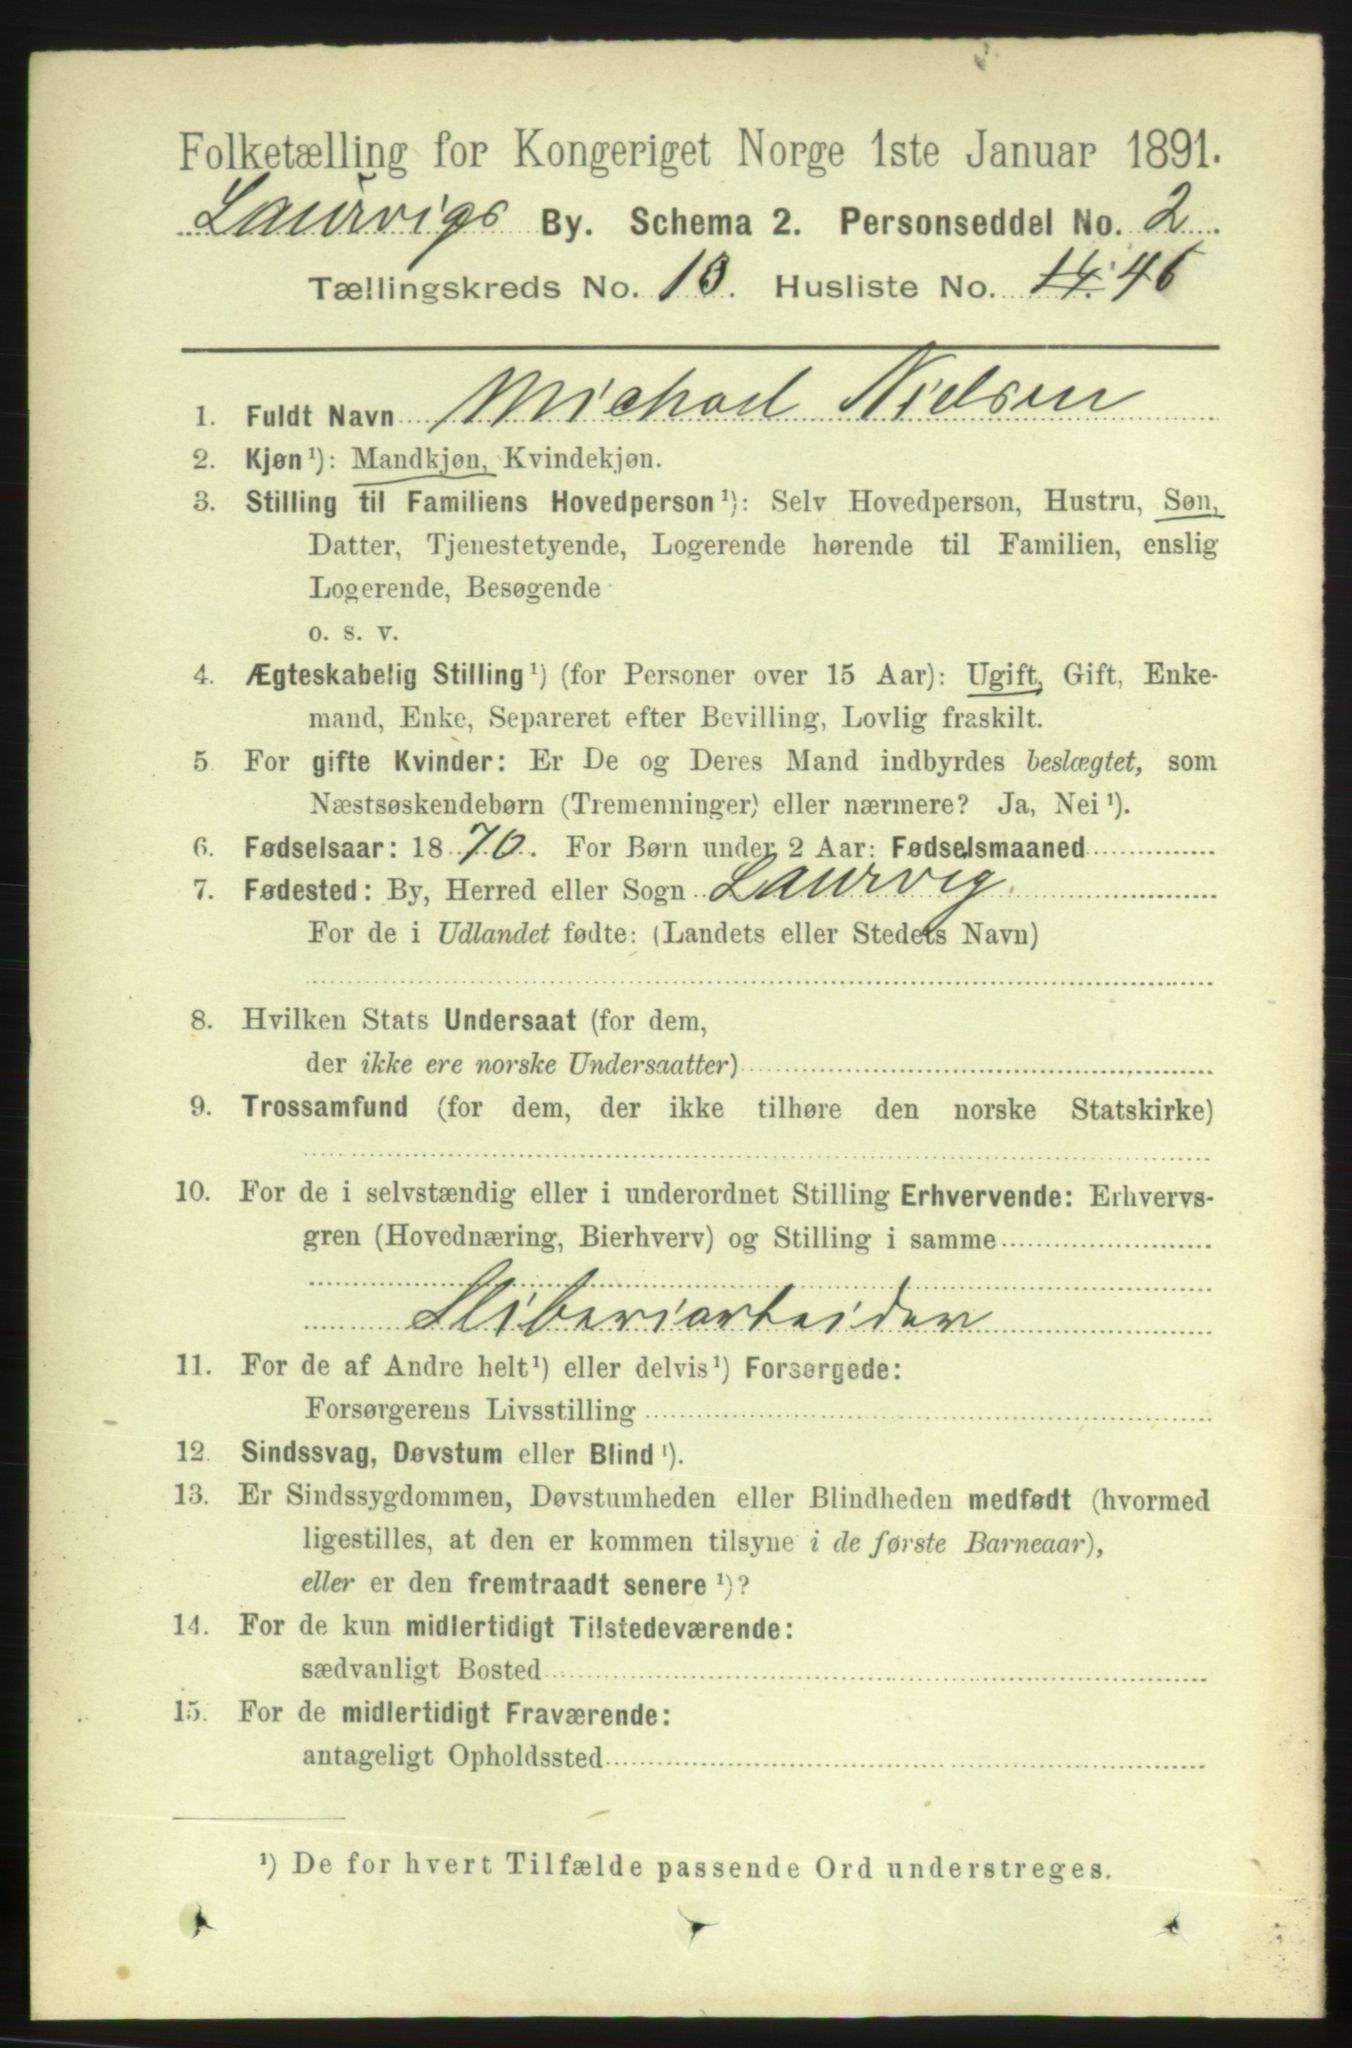 Folketælling for Kongeriget Norge 1ste Januar 1891.
Laurvigs By. Schema 2. Personseddel No. 2.
Tællingskreds No. 13. Husliste No. 14. 46
1. Fuldt Navn Michael Nielsen
2. Kjøn ¹): Mandkjøn, Kvindekjøn.
3. Stilling til Familiens Hovedperson ¹): Selv Hovedperson, Hustru, Søn,
Datter, Tjenestetyende, Logerende hørende til Familien, enslig
Logerende, Besøgende
o. s. v.
4. Ægteskabelig Stilling ¹) (for Personer over 15 Aar): Ugift, Gift, Enke-
mand, Enke, Separeret efter Bevilling, Lovlig fraskilt.
5 For gifte Kvinder: Er De og Deres Mand indbyrdes beslægtet, som
Næstsøskendebørn (Tremenninger) eller nærmere? Ja, Nei ¹).
6. Fødselsaar: 1870. For Børn under 2 Aar: Fødselsmaaned
7. Fødested: By, Herred eller Sogn Laurvig
For de i Udlandet fødte: (Landets eller Stedets Navn)
8. Hvilken Stats Undersaat (for dem,
der ikke ere norske Undersaatter)
9. Trossamfund (for dem, der ikke tilhøre den norske Statskirke)
10. For de i selvstændig eller i underordnet Stilling Erhvervende: Erhvervs-
gren (Hovednæring, Bierhverv) og Stilling i samme
Sliberiarbeider
11. For de af Andre helt ¹) eller delvis ¹) Forsørgede:
Forsørgerens Livsstilling
12. Sindssvag, Døvstum eller Blind ¹).
13. Er Sindssygdommen, Døvstumheden eller Blindheden medfødt (hvormed
ligestilles, at den er kommen tilsyne i de første Barneaar),
eller er den fremtraadt senere ¹)?
14. For de kun midlertidigt Tilstedeværende:
sædvanligt Bosted
15. For de midlertidigt Fraværende:
antageligt Opholdssted
¹) De for hvert Tilfælde passende Ord understreges.